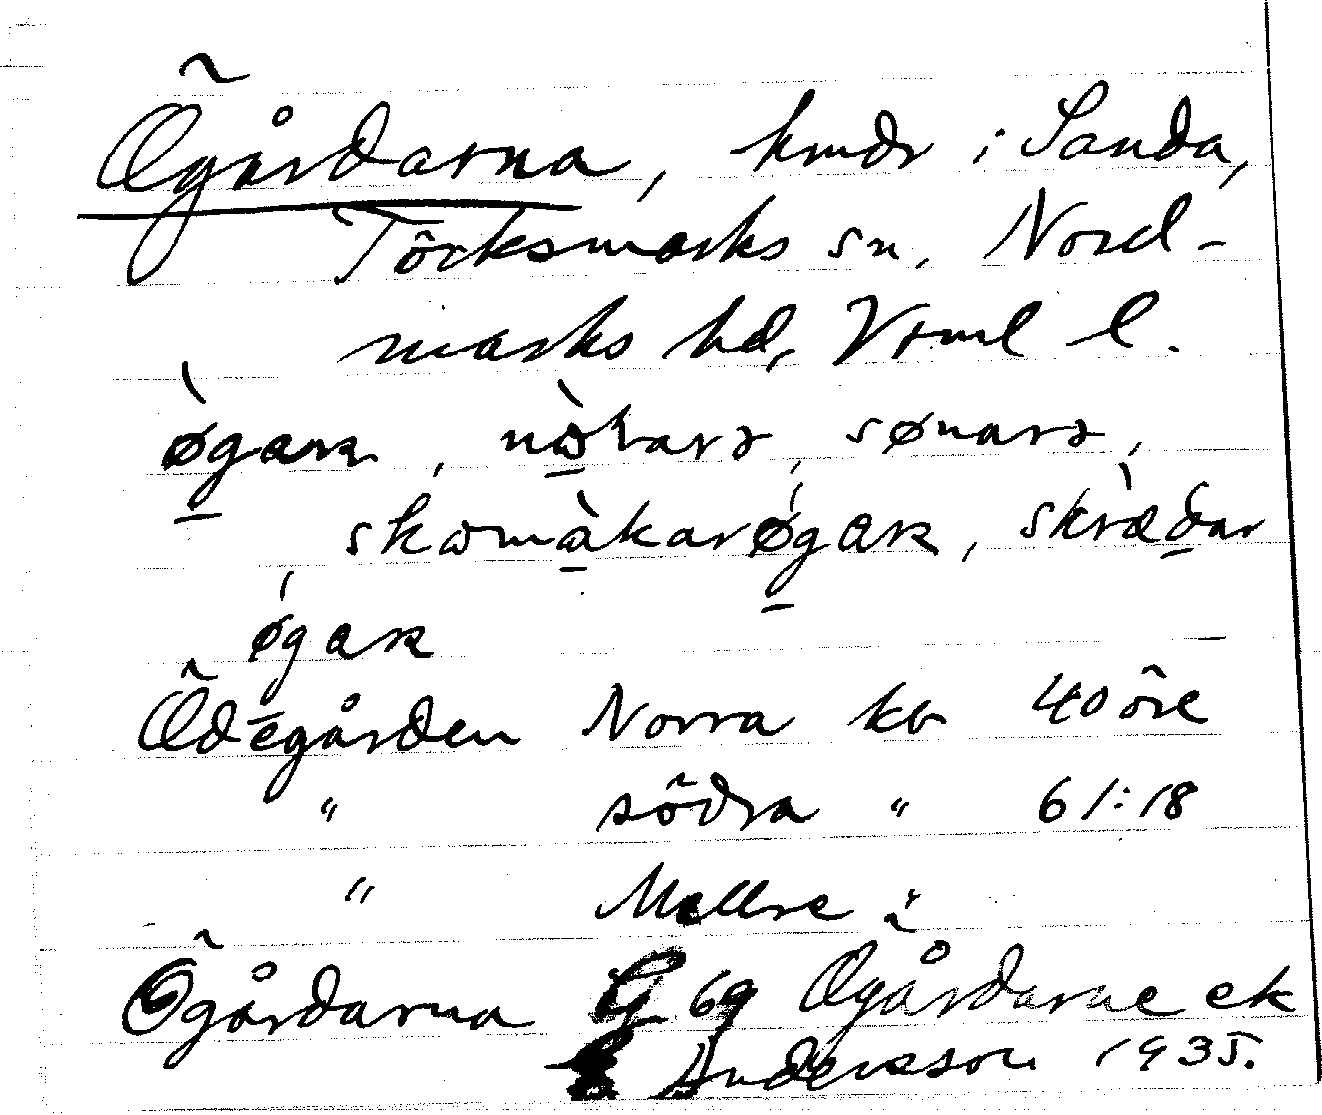 Ögårdarna, hmdr i Sanda,
Töcksmarks sn, Nord-
marks hd, Vrml l.
øgaɴ, nɷ̀lars, sønars,
skɷmàkarøgaɴ, skrædar
øgaɴ
Ödegården Norra kb 40 öre
" södra " 61:18
" Mellre "
Ögårdarna G 69 Ögårdarne ek
Andersson 1935.